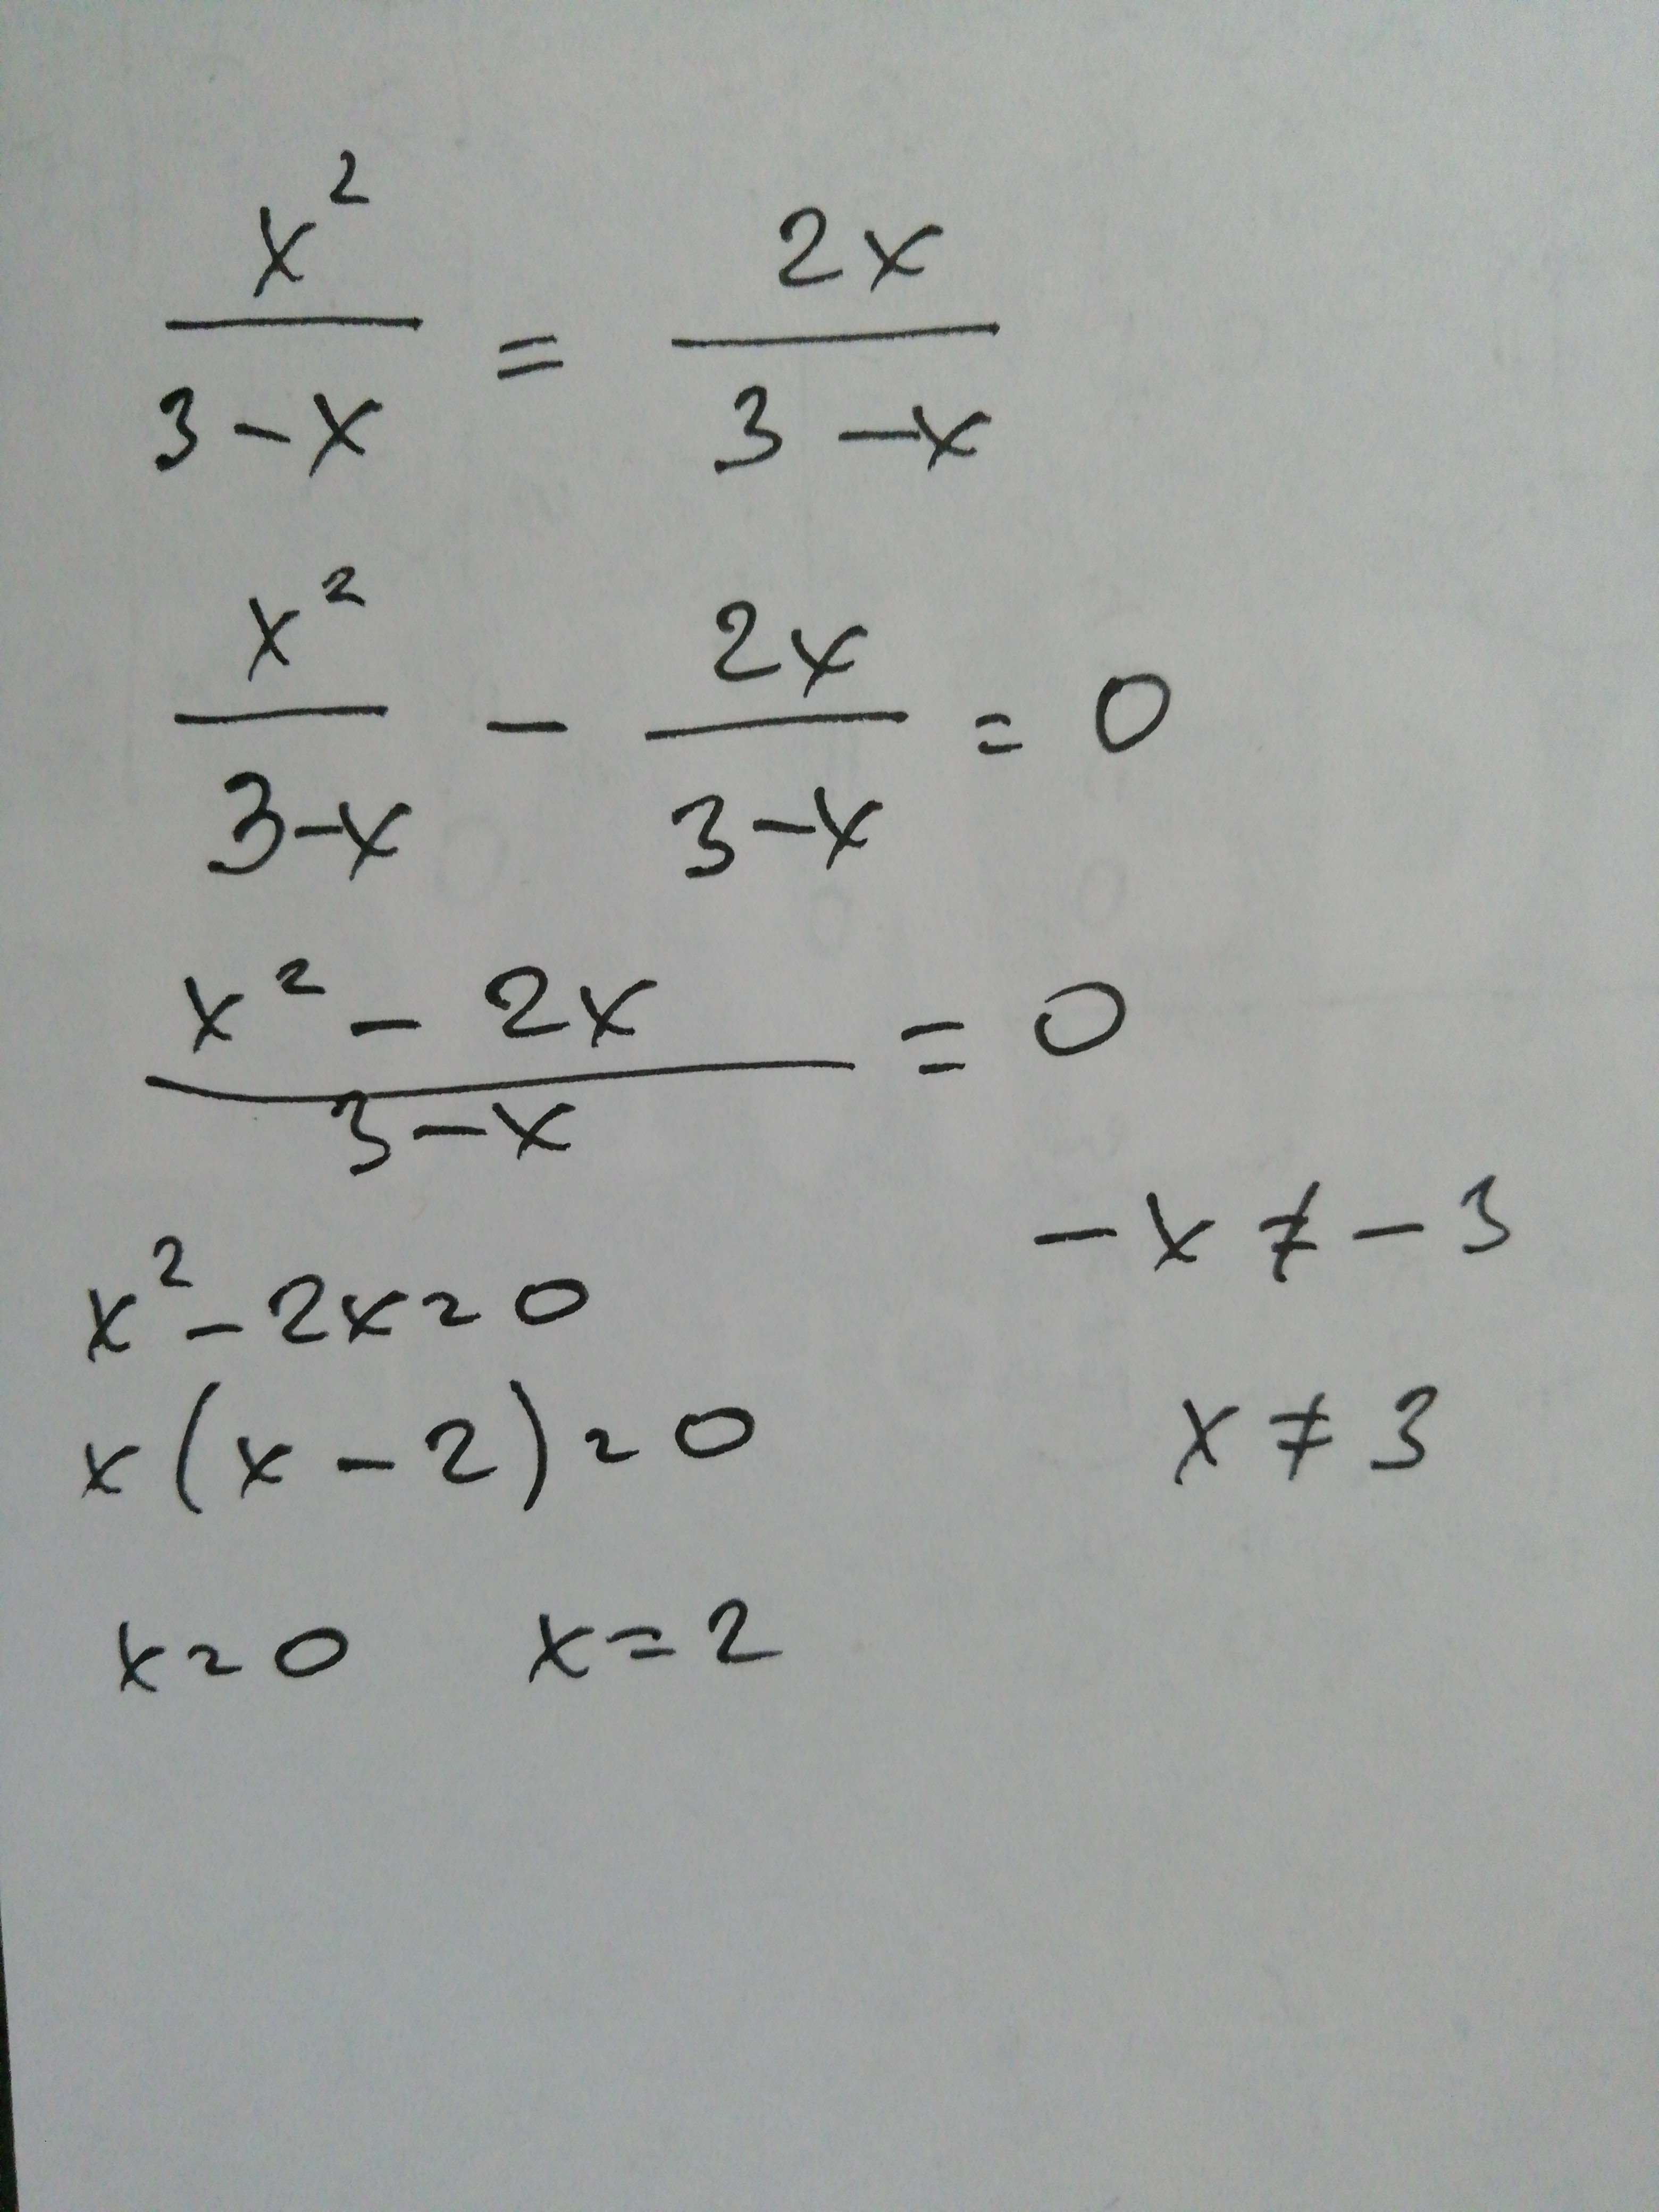 x² / (3-x) = 2x / (3-x)
x² / (3-x) - 2x / (3-x) = 0
(x² - 2x) / (3-x) = 0
-x ≠ -3
x² - 2x = 0
x(x-2) = 0
x ≠ 3
x = 0 x = 2